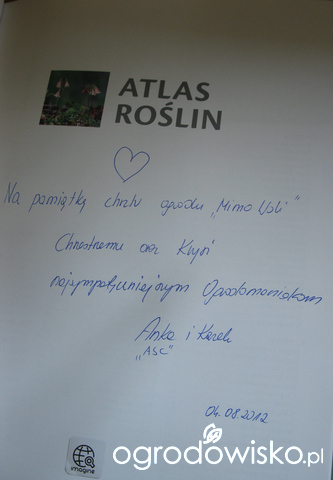 ATLAS
ROŚLIN
Na pamiątkę chrztu ogrodu „Mimo Woli"
Chrzestnemu oraz
najsympatyczniejszym Ogrodomaniakom
Anka i
„ASC"
04.08.2012
imagine
ogrodowisko.pl